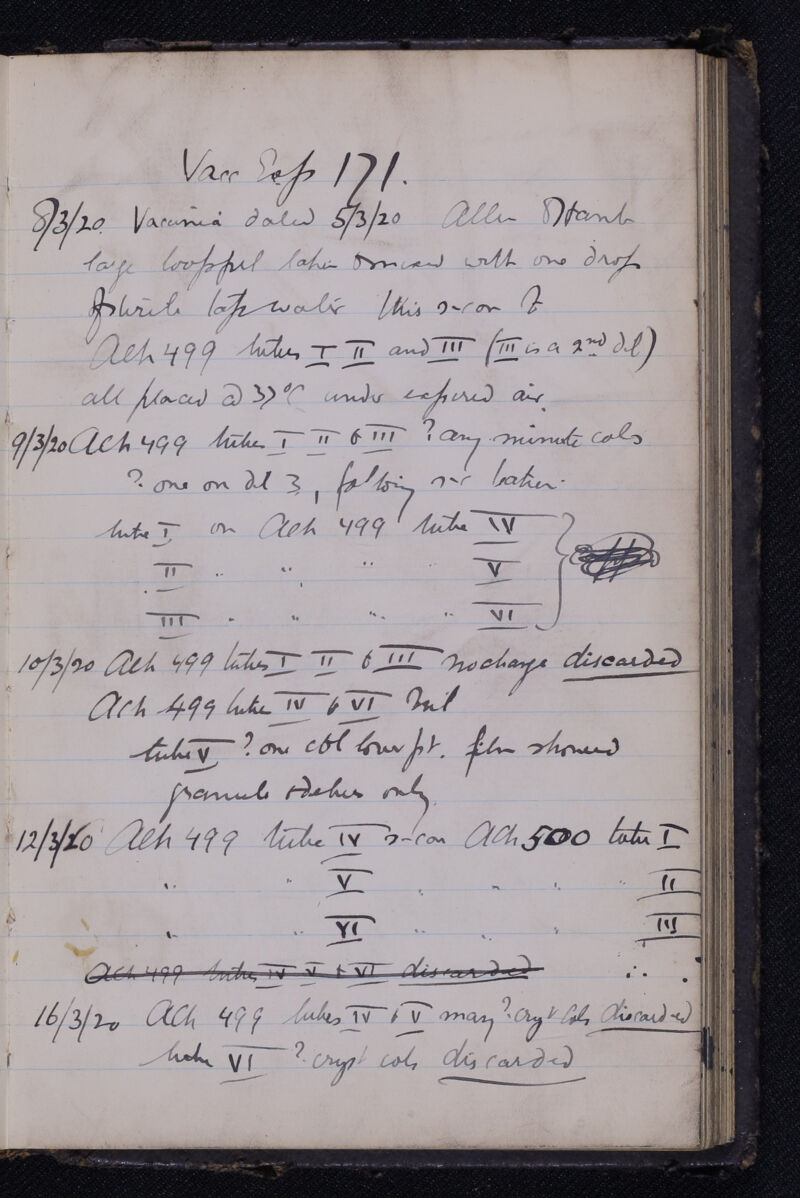 Vacc Exp 171.
8/3/20. Vaccinia dated 5/3/20 Allen & Hanb
large loopful taken & mixed with one drop
of sterile tap water this s-c on to
Ach 499 tubes I II and III (III is a 2nd dil)
all placed @ 37°C under expired air.
9/3/20 Ach 499 tubes I II & III ? any minute cols
? one on dil 3, s-c
tube I on Ach 499 tube IV
II " " " V
III " " " " VI
10/3/20 Ach 499 tubes I II & III no change discarded
Ach 499 tube IV & VI Nil
tube V ? one col lower pt. film showed
granules & debris only.
12/3/20 Ach 499 tube IV s-c on Ach 500 tube I
" " V " " " " II
" " VI " " " III
Ach 499 tubes IV V & VI discarded
16/3/20 Ach 499 tubes IV & V many ? cryst cols discarded
tube VI ? cryst cols discarded